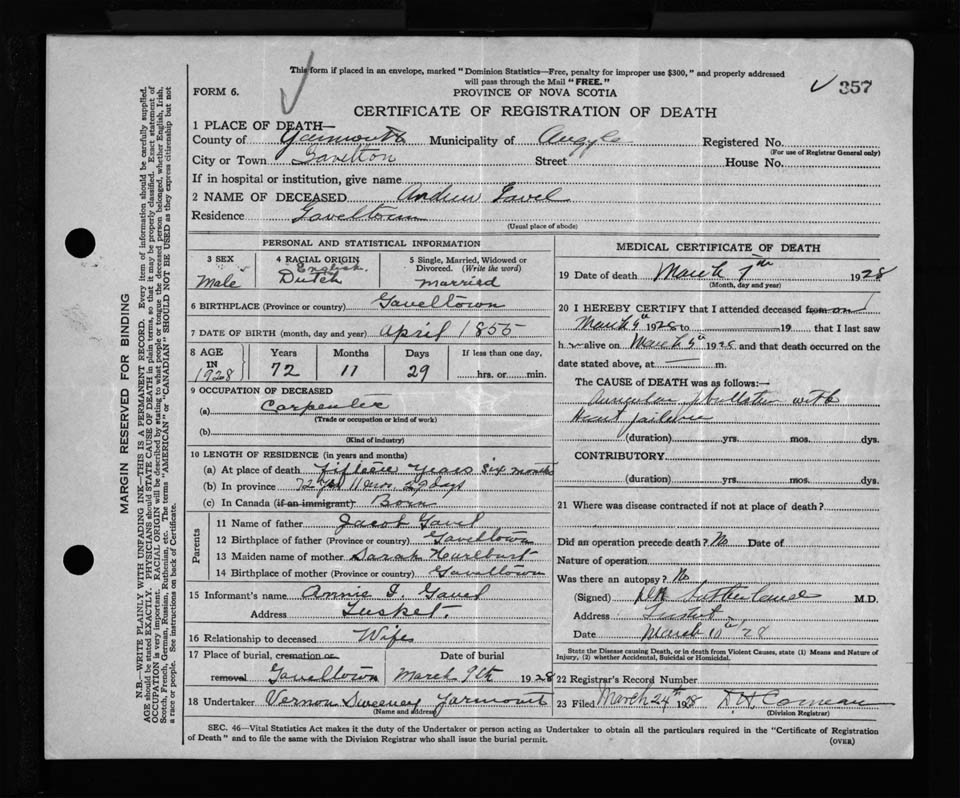 This form if placed in an envelope, marked "Dominion Statistics—Free, penalty for improper use $300," and properly addressed
will pass through the Mail "FREE."
✓ 357
FORM 6.
PROVINCE OF NOVA SCOTIA
CERTIFICATE OF REGISTRATION OF DEATH
1 PLACE OF DEATH—
County of Yarmouth Municipality of Argyle Registered No.
(For use of Registrar General only)
City or Town Gavelton Street House No.
If in hospital or institution, give name
2 NAME OF DECEASED Andrew Gavel
Residence Gaveltown
(Usual place of abode)
PERSONAL AND STATISTICAL INFORMATION
3 SEX
Male
4 RACIAL ORIGIN
English
Dutch
5 Single, Married, Widowed or
Divorced. (Write the word)
Married
6 BIRTHPLACE (Province or country) Gaveltown
7 DATE OF BIRTH (month, day and year) April 1855
8 AGE
IN
1928
Years
72
Months
11
Days
29
If less than one day,
hrs. or min.
9 OCCUPATION OF DECEASED
(a) Carpenter
(Trade or occupation or kind of work)
(b)
(Kind of industry)
10 LENGTH OF RESIDENCE (in years and months)
(a) At place of death fifteen years six months
(b) In province 72 yrs 11 mos. 29 days
(c) In Canada (if an immigrant) Born
Parents
11 Name of father Jacob Gavel
12 Birthplace of father (Province or country) Gaveltown
13 Maiden name of mother Sarah Hurlburt
14 Birthplace of mother (Province or country) Gaveltown
15 Informant's name Annie I. Gavel
Address Tusket.
16 Relationship to deceased Wife
17 Place of burial, cremation or Date of burial
removal Gaveltown March 9th 1928
18 Undertaker Vernon Sweeney Yarmouth
(Name and address)
MEDICAL CERTIFICATE OF DEATH
19 Date of death March 7th 1928
(Month, day and year)
20 I HEREBY CERTIFY that I attended deceased from on
March 1928 to 19 that I last saw
h alive on March 1928 and that death occurred on the
date stated above, at m.
The CAUSE OF DEATH was as follows:—
Auricular fibrillation with
Heart failure
(duration) yrs. mos. dys.
CONTRIBUTORY
(duration) yrs. mos. dys.
21 Where was disease contracted if not at place of death?
Did an operation precede death? No Date of
Nature of operation
Was there an autopsy? No
(Signed) Sutherland M.D.
Address Tusket
Date March 10th '28
State the Disease causing Death, or in death from Violent Causes, state (1) Means and Nature of
Injury, (2) whether Accidental, Suicidal or Homicidal.
22 Registrar's Record Number
23 Filed March 24th 1928 Comeau
(Division Registrar)
SEC. 46—Vital Statistics Act makes it the duty of the Undertaker or person acting as Undertaker to obtain all the particulars required in the "Certificate of Registration
of Death" and to file the same with the Division Registrar who shall issue the burial permit. (OVER)
MARGIN RESERVED FOR BINDING
N.B.—WRITE PLAINLY WITH UNFADING INK—THIS IS A PERMANENT RECORD. Every item of information should be carefully supplied.
AGE should be stated EXACTLY. PHYSICIANS should STATE CAUSE OF DEATH in plain terms, so that it may be properly classified. Exact statement of
OCCUPATION is very important. RACIAL ORIGIN will be described by stating to what people or tongue the deceased person belonged, whether English, Irish,
Scotch, French, German, Russian, Ruthenian, etc. The terms "AMERICAN" or "CANADIAN" SHOULD NOT BE USED as they express citizenship but not
a race or people. See instructions on back of Certificate.